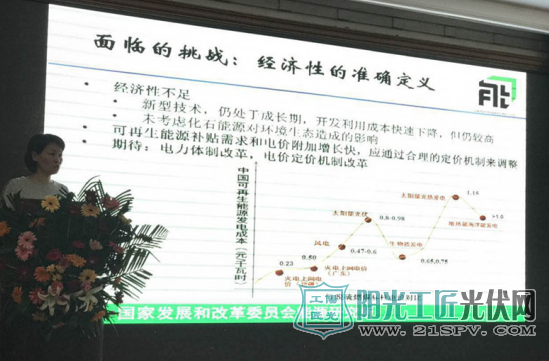 面临的挑战：经济性的准确定义
• 经济性不足
• 新型技术，仍处于成长期，开发利用成本快速下降，但仍较高
• 未考虑化石能源对环境生态造成的影响
• 可再生能源补贴需求和电价附加增长快，应通过合理的定价机制来调整
• 期待：电力体制改革，电价定价机制改革
中国可再生能源发电成本（元/千瓦时）
太阳能光热发电
1.15
太阳能光伏
0.8-0.98
>1.0
风电
0.47-0.6
生物质发电
0.65,0.75
0.50
0.23
火电上网电价
火电上网电价
（广东）
国家发展和改革委员会
阳光工匠光伏网
WWW.21SPV.COM